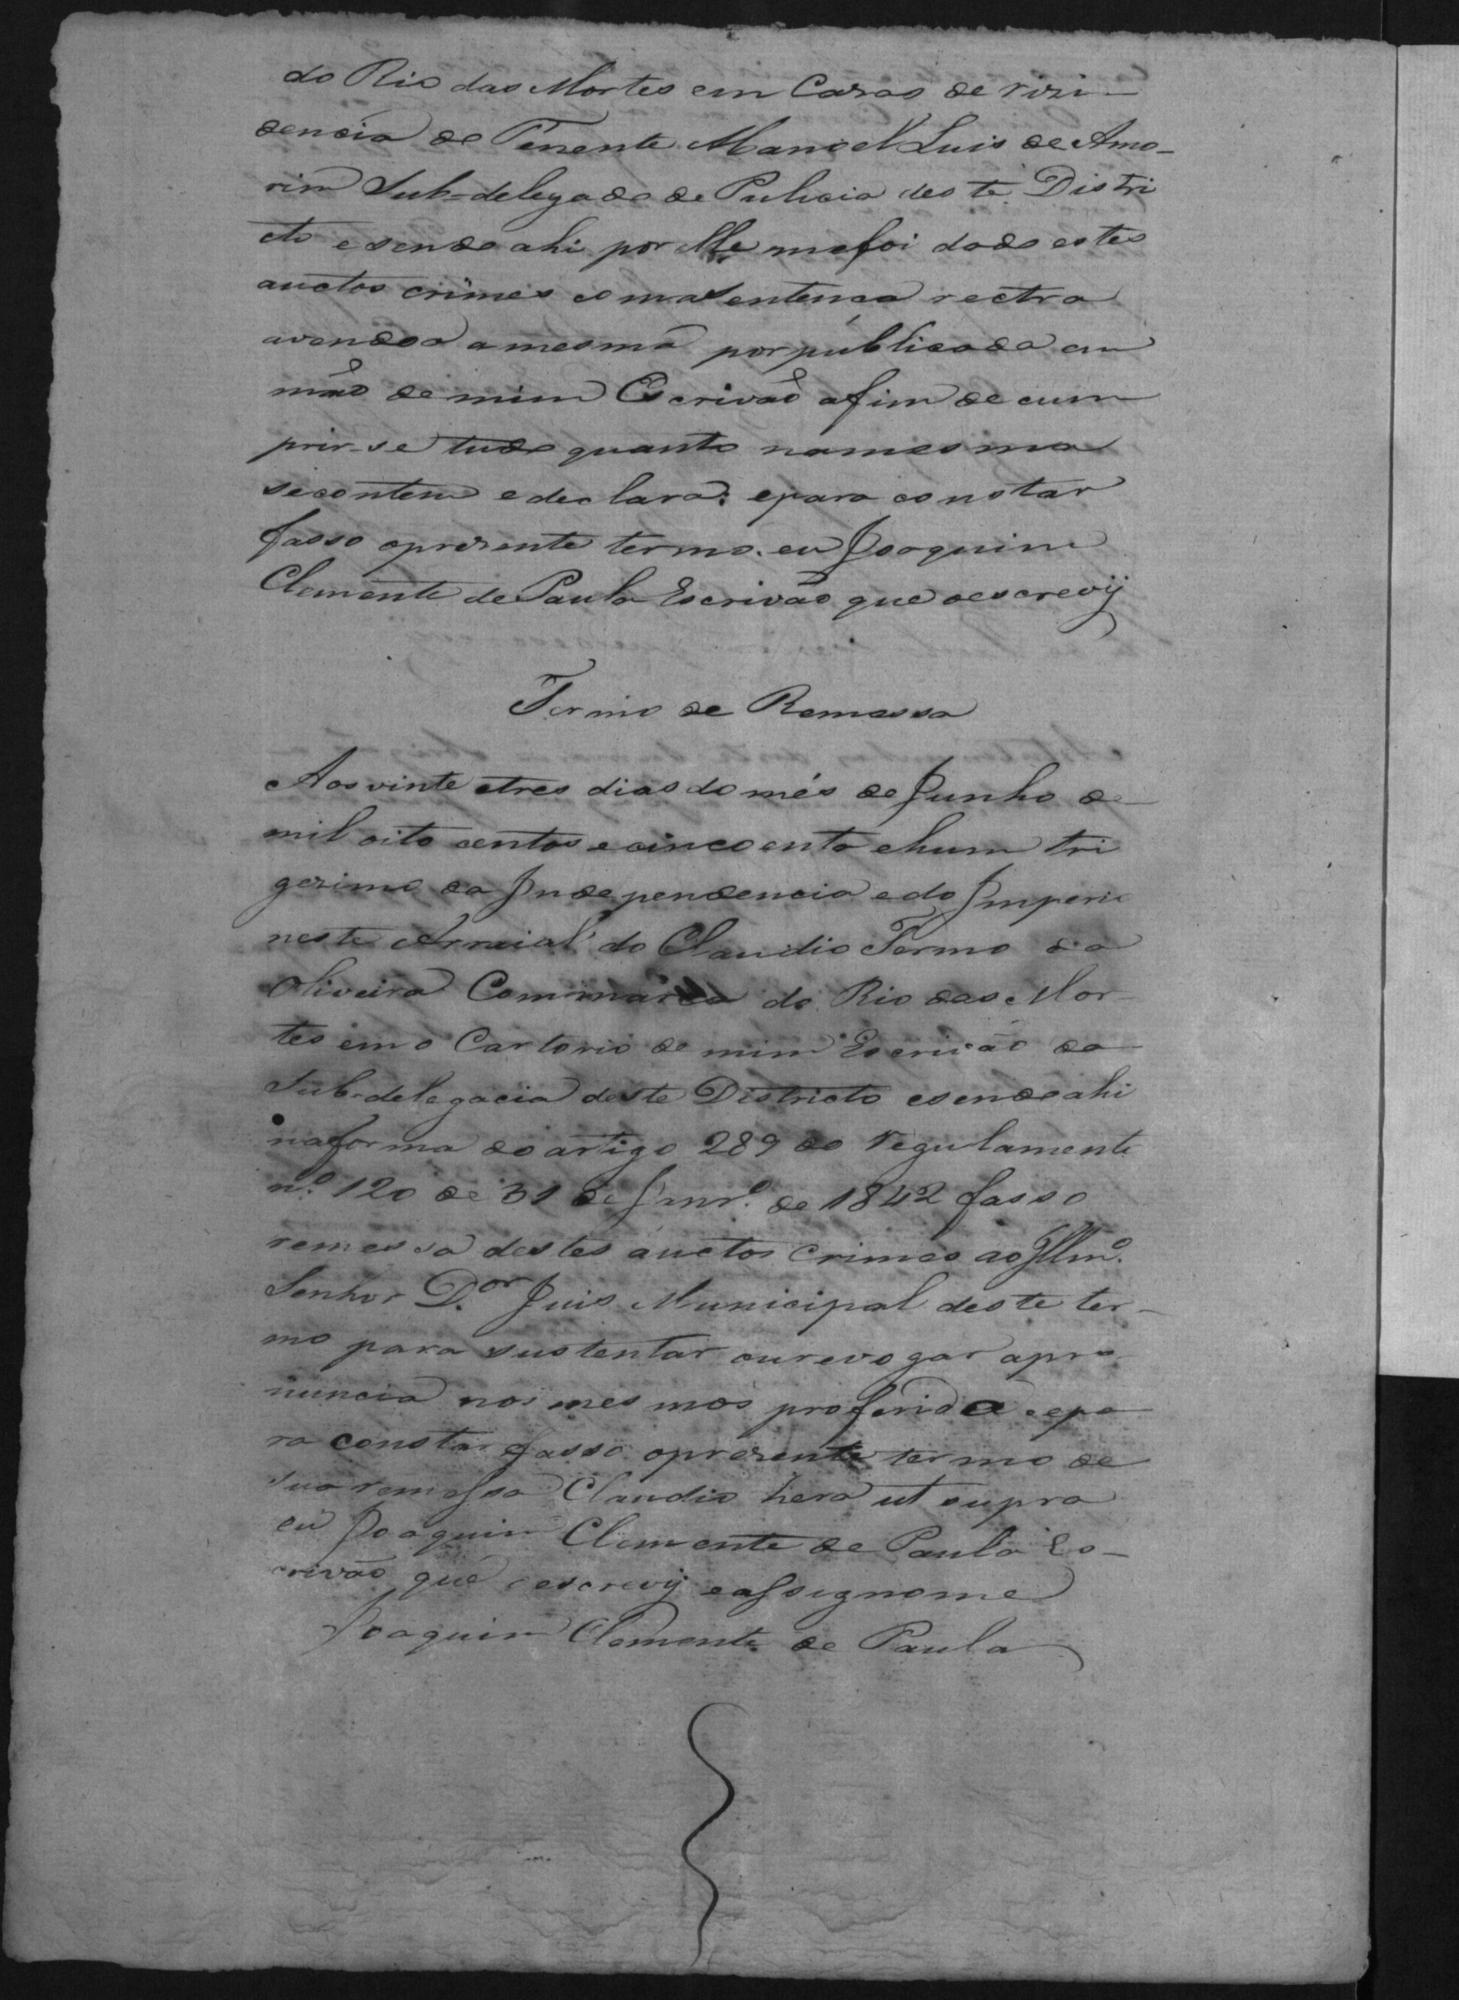 do Rio das Mortes em Cazas de rizi-
dencia de Tenente Manoel Luis de Amo-
rim Sub-delegado de Pulicia deste Distri
cto e sendo ahi por elle mefoi dado estes
auctos crimes comasentença rectro
avendoa amesma por públicada em
mão de mim Escrivão afim de cum
prir-se tudo quanto namesma
secontem edeclara: epara constar
fasso oprezente termo. eu Joaquim
Clemente de Paula Escrivão que oescrevÿ
Termo de Remessa
Aosvinte etres dias do mês de Junho de
mil oito centos ecincoenta ehum tri
gezimo da Independencia edo Imperio
neste Arraial do Claudio Termo da
Oliveira Commarca do Rio das Mor-
tes em o Cartorio de mim Escrivão da
Sub-delegacia deste Districto esendo ahi
naforma do artigo 289 do regulamento
nº. 120 de 31 de Janrº. de 1842 fasso
remessa destes auctos crimes ao Illmº.
Senhor D.or Juis Municipal deste ter-
mo para sustentar ourevogar apro
nuncia nos mesmos proferida epa
ra constar fasso oprezente termo de
sua remessa Claudio hera ut supra
eu Joaquim Clemente de Paula Es-
crivão que oescrevÿ eassignome
Joaquim Clemente de Paula